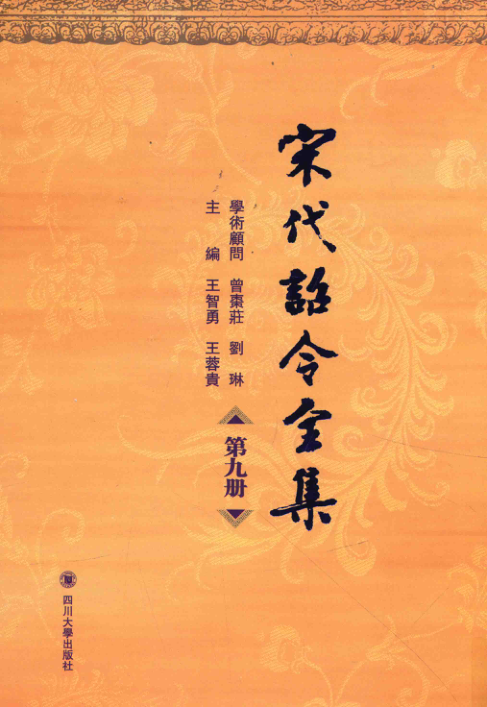 宋代詔令全集
學術顧問 曾棗莊 劉琳
主編 王智勇 王蓉貴
第九册
四川大學出版社